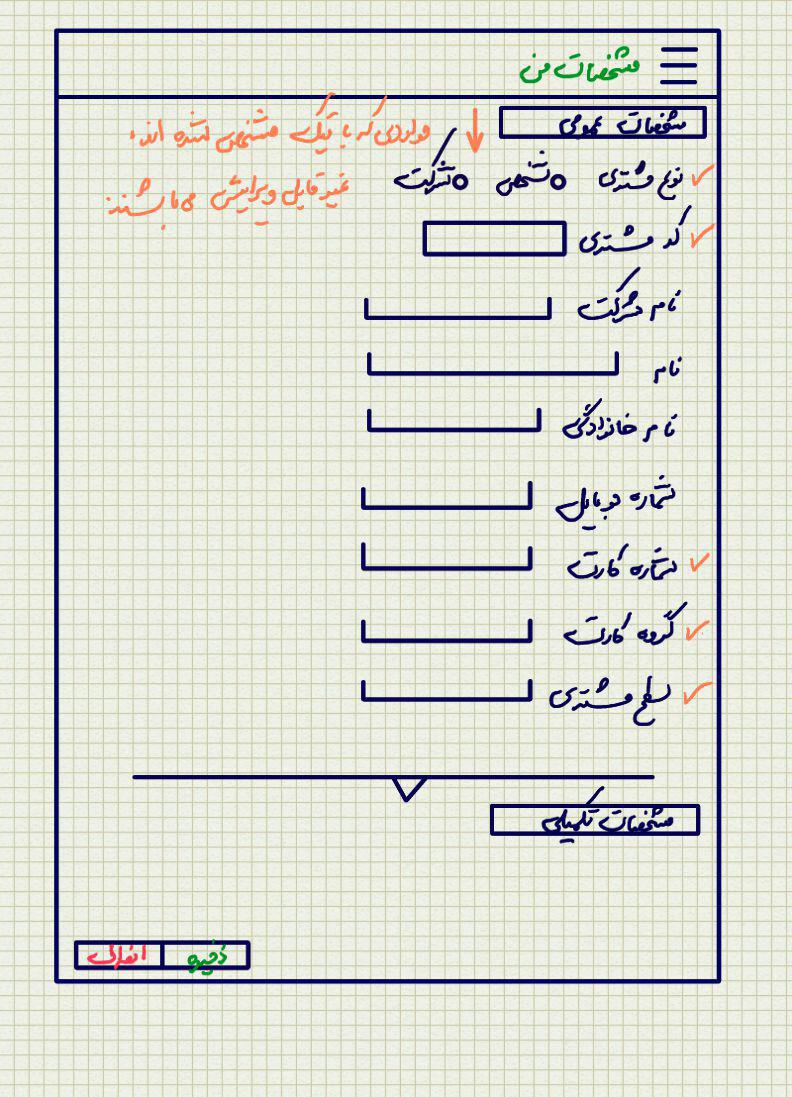 مشخصات من
مشخصات عمومی
مواردی که با تیک مشخص شده اند،
غیر قابل ویرایش می باشند
نوع مشتری شخص شرکت
کد مشتری
نام شرکت
نام
نام خانوادگی
شماره موبایل
شماره کارت
گروه کارت
سطح مشتری
مشخصات تکمیلی
ذخیره انصراف